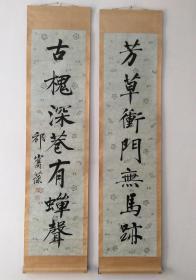 芳草衝門無馬跡
古槐深巷有蟬聲
祁寯藻